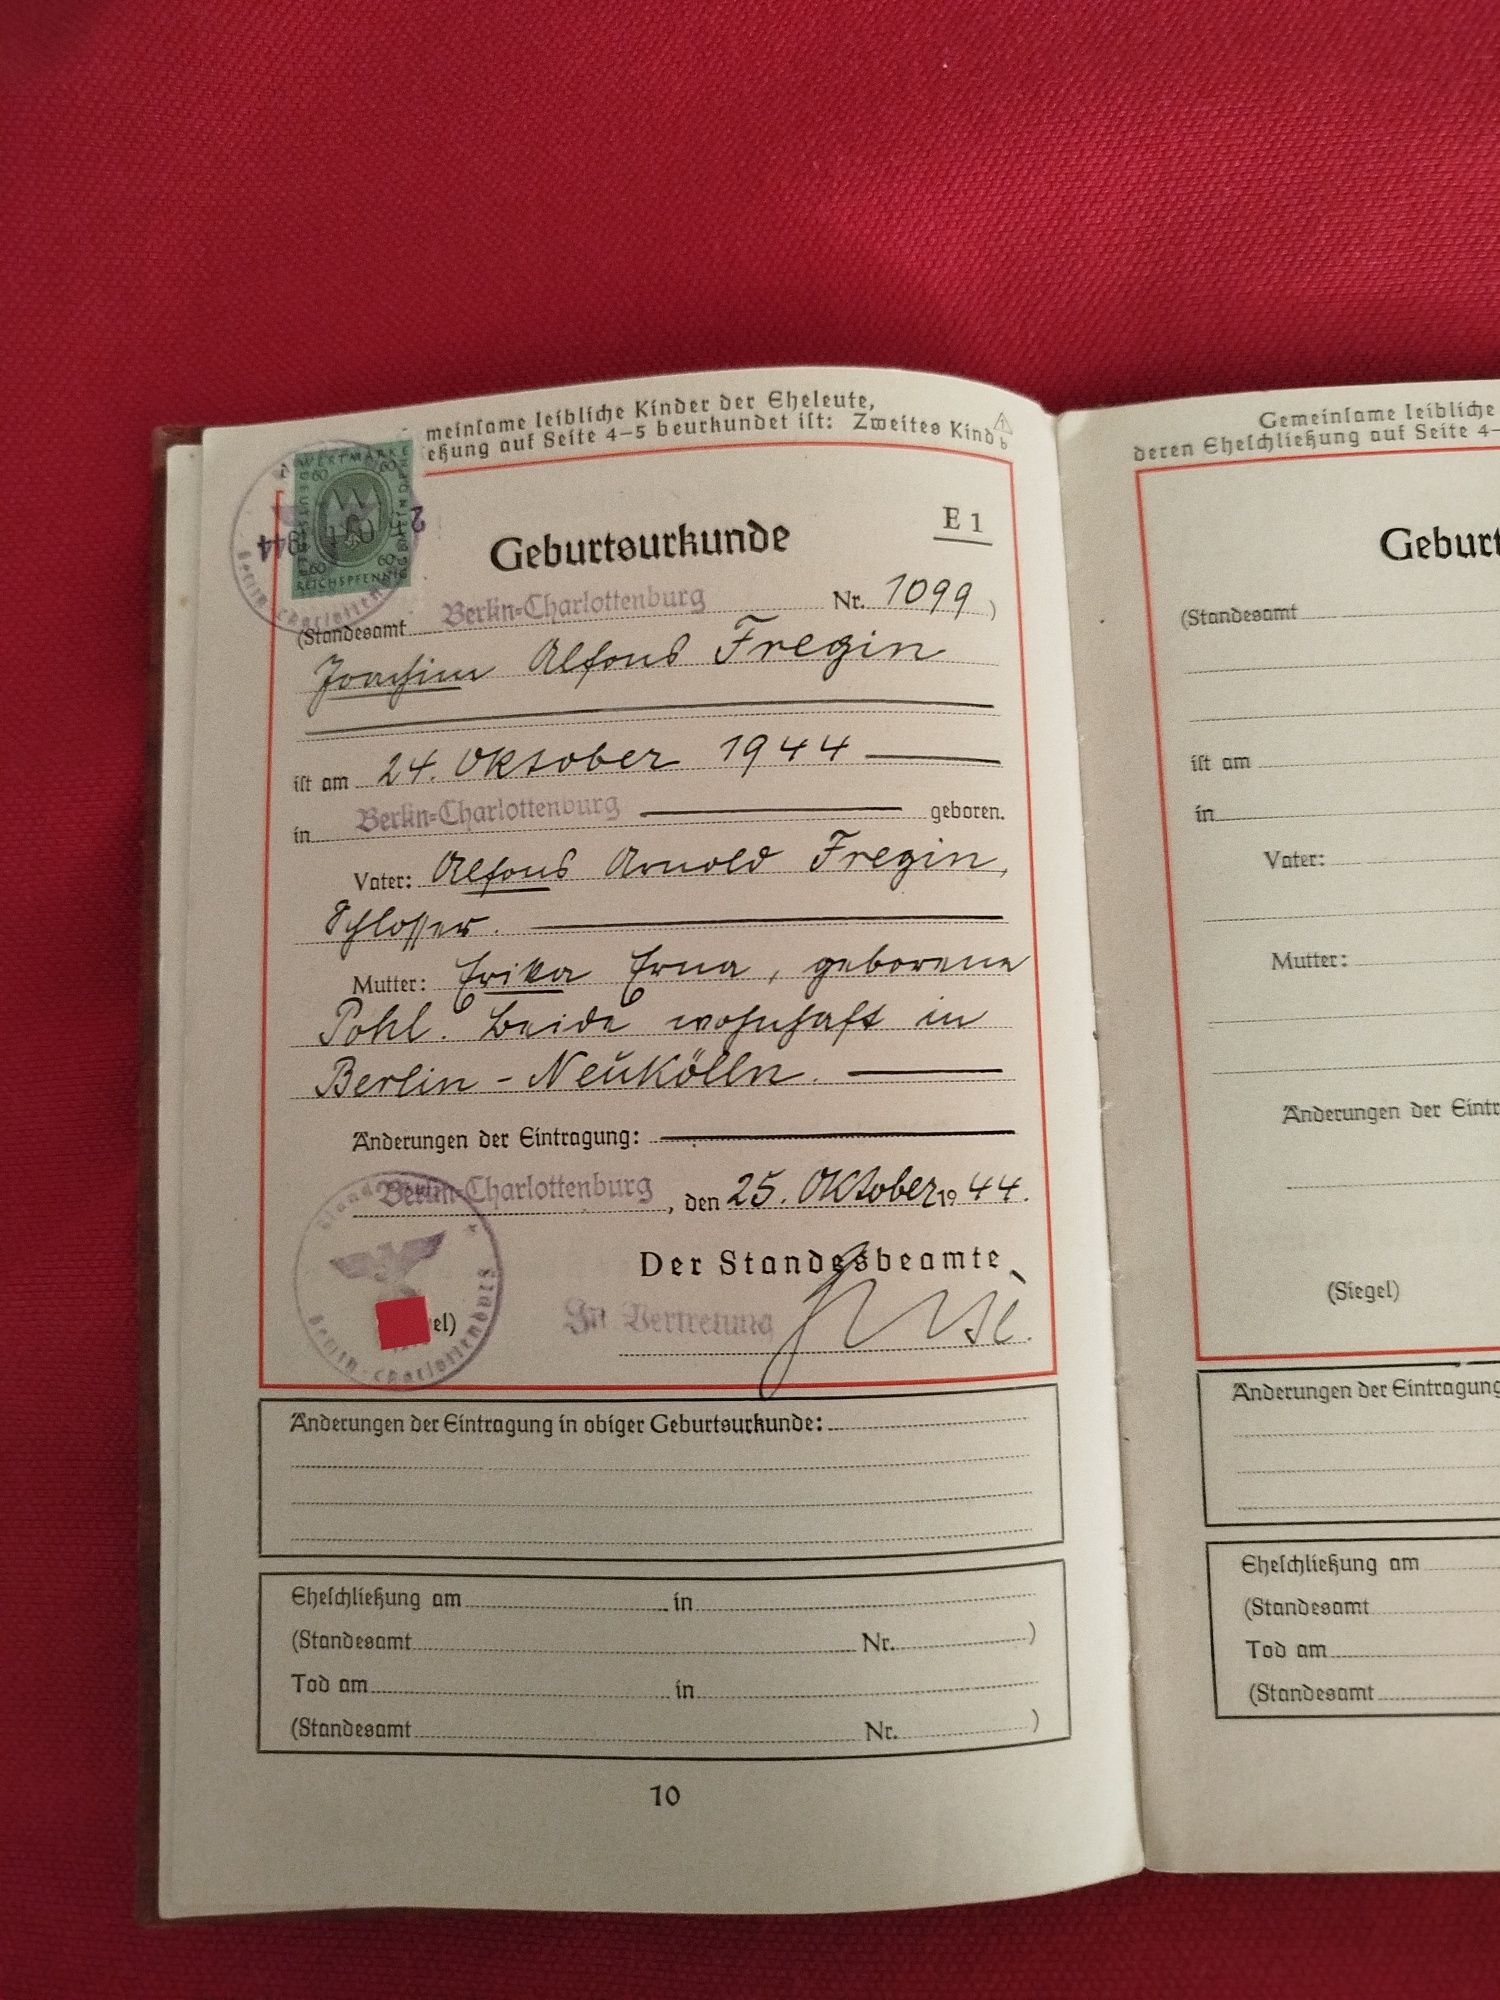 meinsame leibliche Kinder der Eheleute,
eßung auf Seite 4–5 beurkundet ist: Zweites Kind
b
WERTMARKE
60 60
60 60
REICHSPFENNIG
1944
Geburtsurkunde
E 1
(Standesamt Berlin-Charlottenburg Nr. 1099)
Joachim Alfons Fregin
ist am 24. Oktober 1944
in Berlin-Charlottenburg geboren.
Vater: Alfons Arnold Fregin,
Schlosser.
Mutter: Erika Erna, geborene
Pohl. Beide wohnhaft in
Berlin-Neukölln.
Änderungen der Eintragung:
Berlin-Charlottenburg, den 25. Oktober 1944.
Der Standesbeamte
In Vertretung
el)
Berlin-Charlottenburg
Änderungen der Eintragung in obiger Geburtsurkunde:
Eheschließung am in
(Standesamt Nr. )
Tod am in
(Standesamt Nr. )
10
Gemeinsame leibliche
deren Eheschließung auf Seite 4–
Geburt
(Standesamt
ist am
in
Vater:
Mutter:
Änderungen der Eintr
(Siegel)
Änderungen der Eintragung
Eheschließung am
(Standesamt
Tod am
(Standesamt